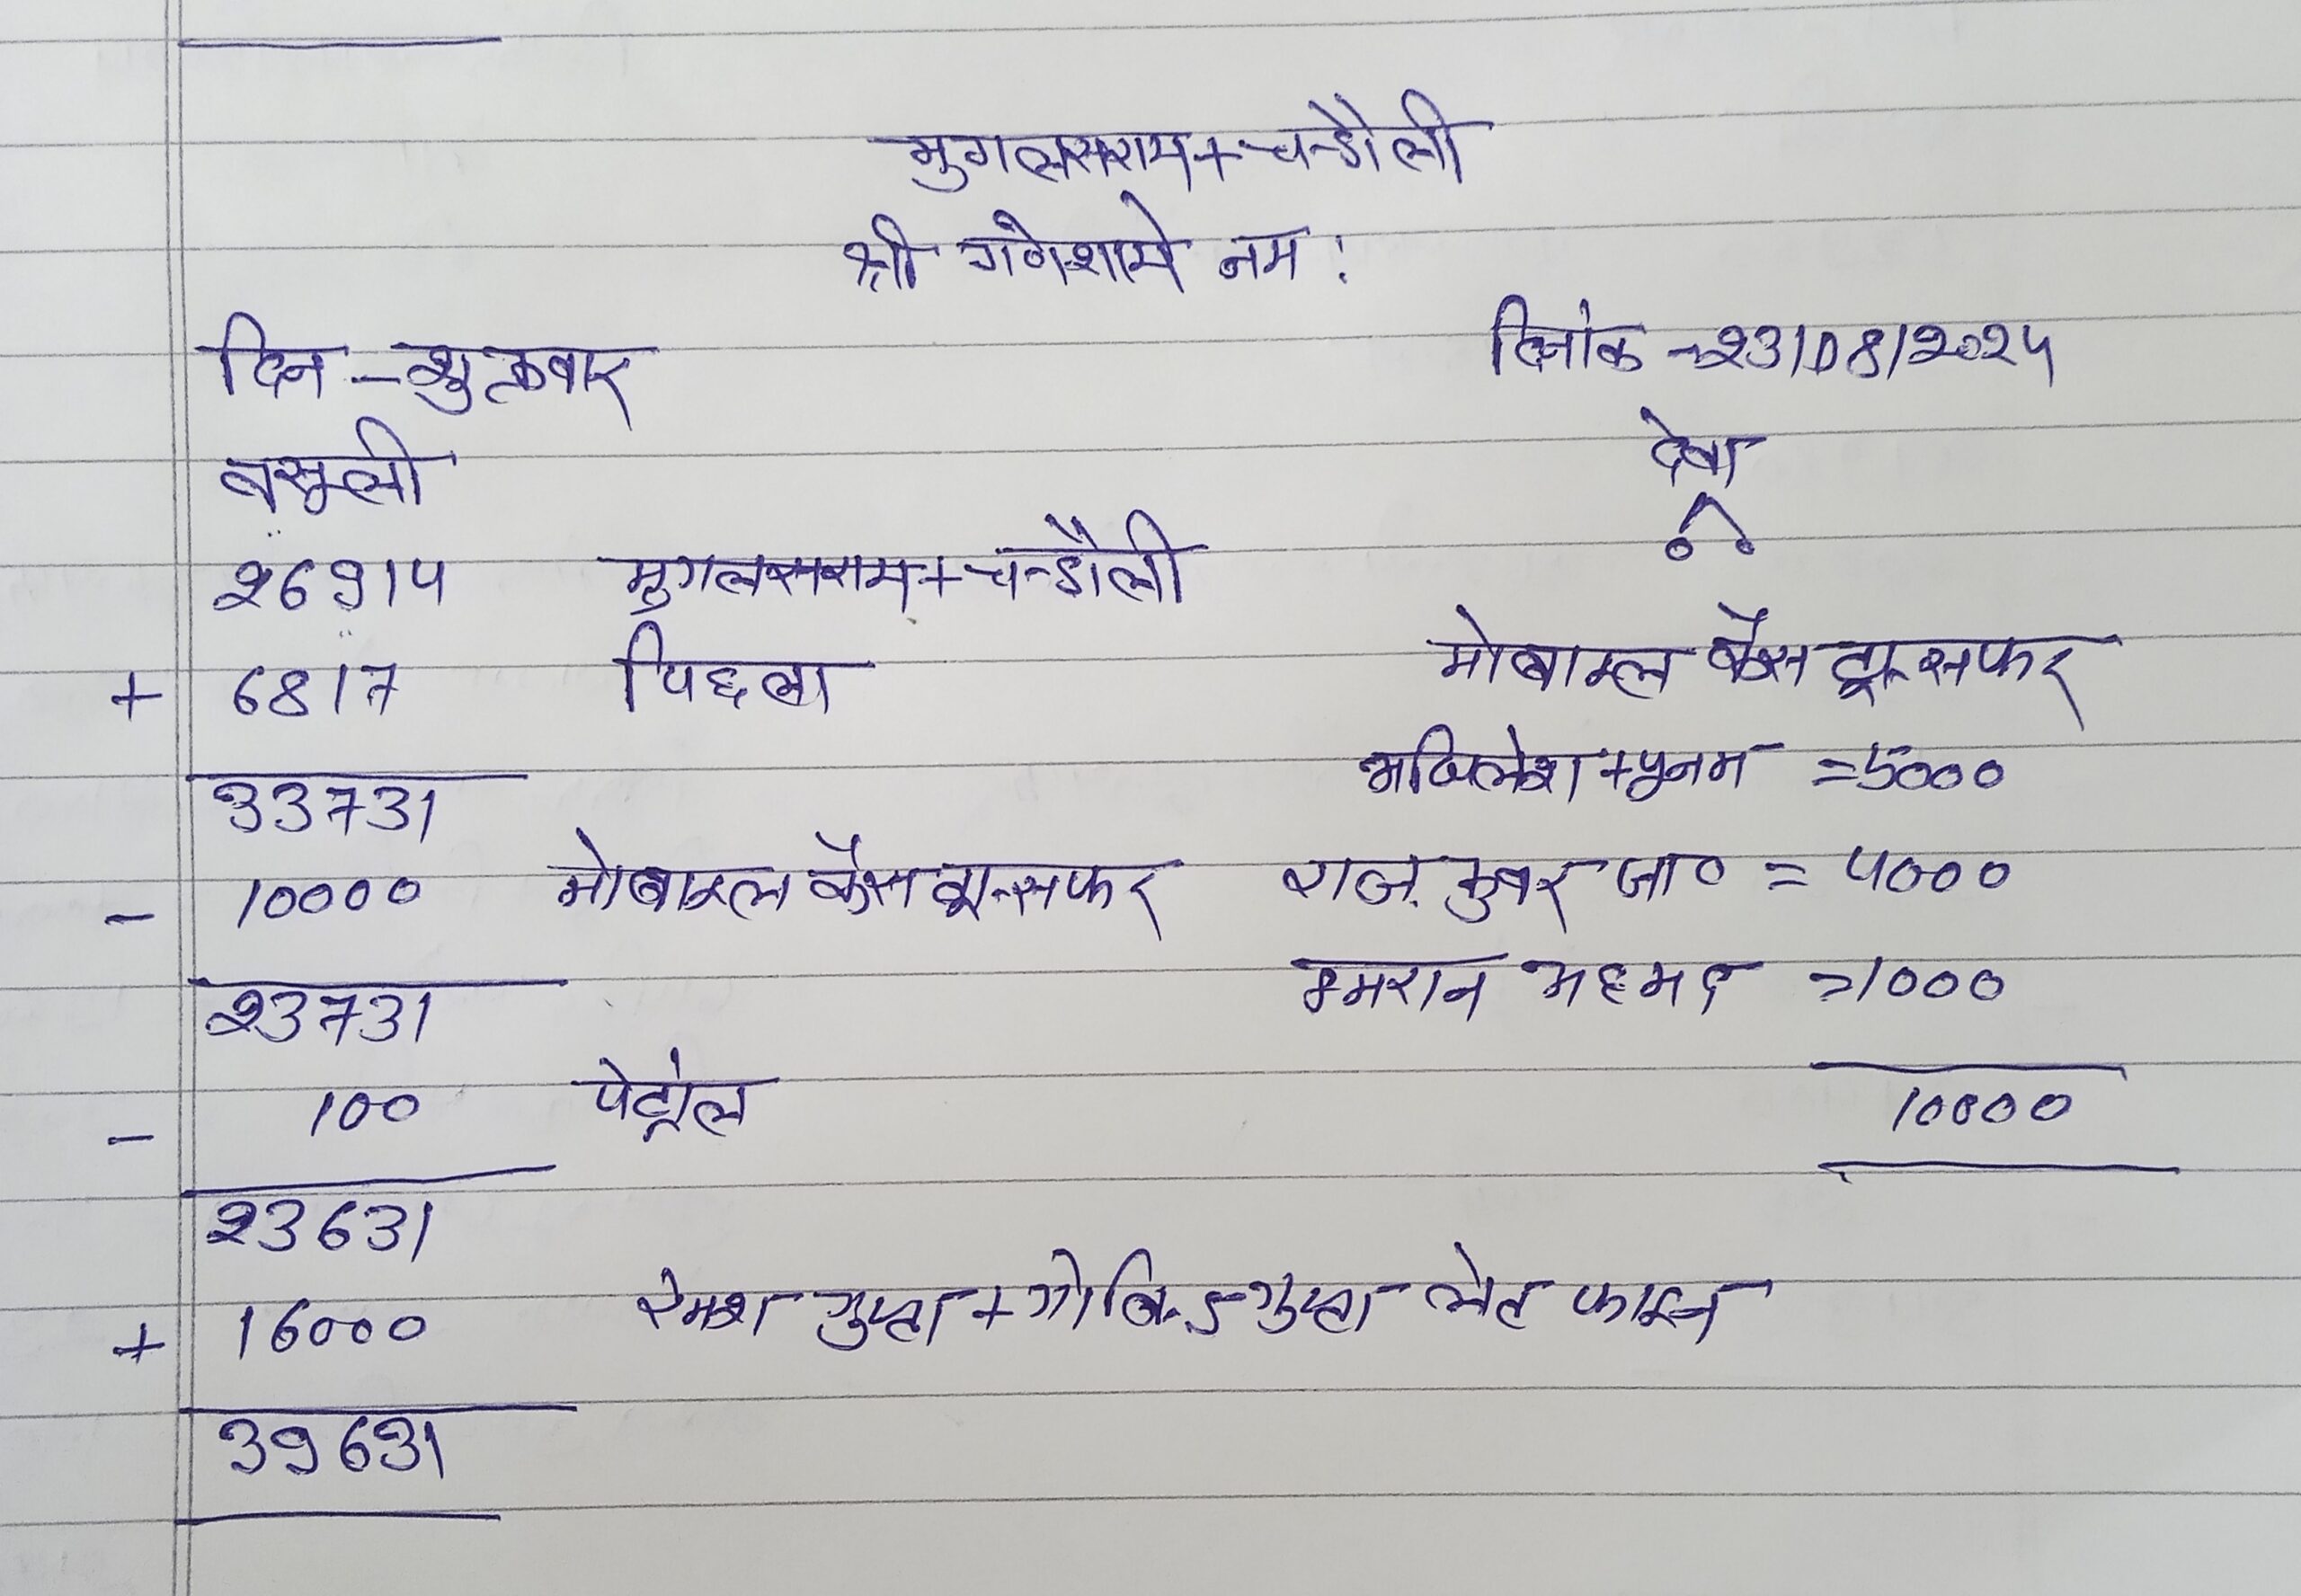 मुगलसराय + चन्डौली
श्री गणेशाये नम :
दिन - शुक्रवार दिनांक - 23/08/2024
वसूली देवा
26914 मुगलसराय + चन्डौली
+ 6817 पिछला मोबाइल कैस ट्रान्सफर
33731 अखिलेश + पूनम = 5000
- 10000 मोबाइल कैस ट्रान्सफर राज कुवर जा० = 4000
23731 इमरान अहमद = 1000
- 100 पेट्रोल 10000
23631
+ 16000 रमेश गुप्ता + गोविन्ड गुप्ता लेट फाइन
39631